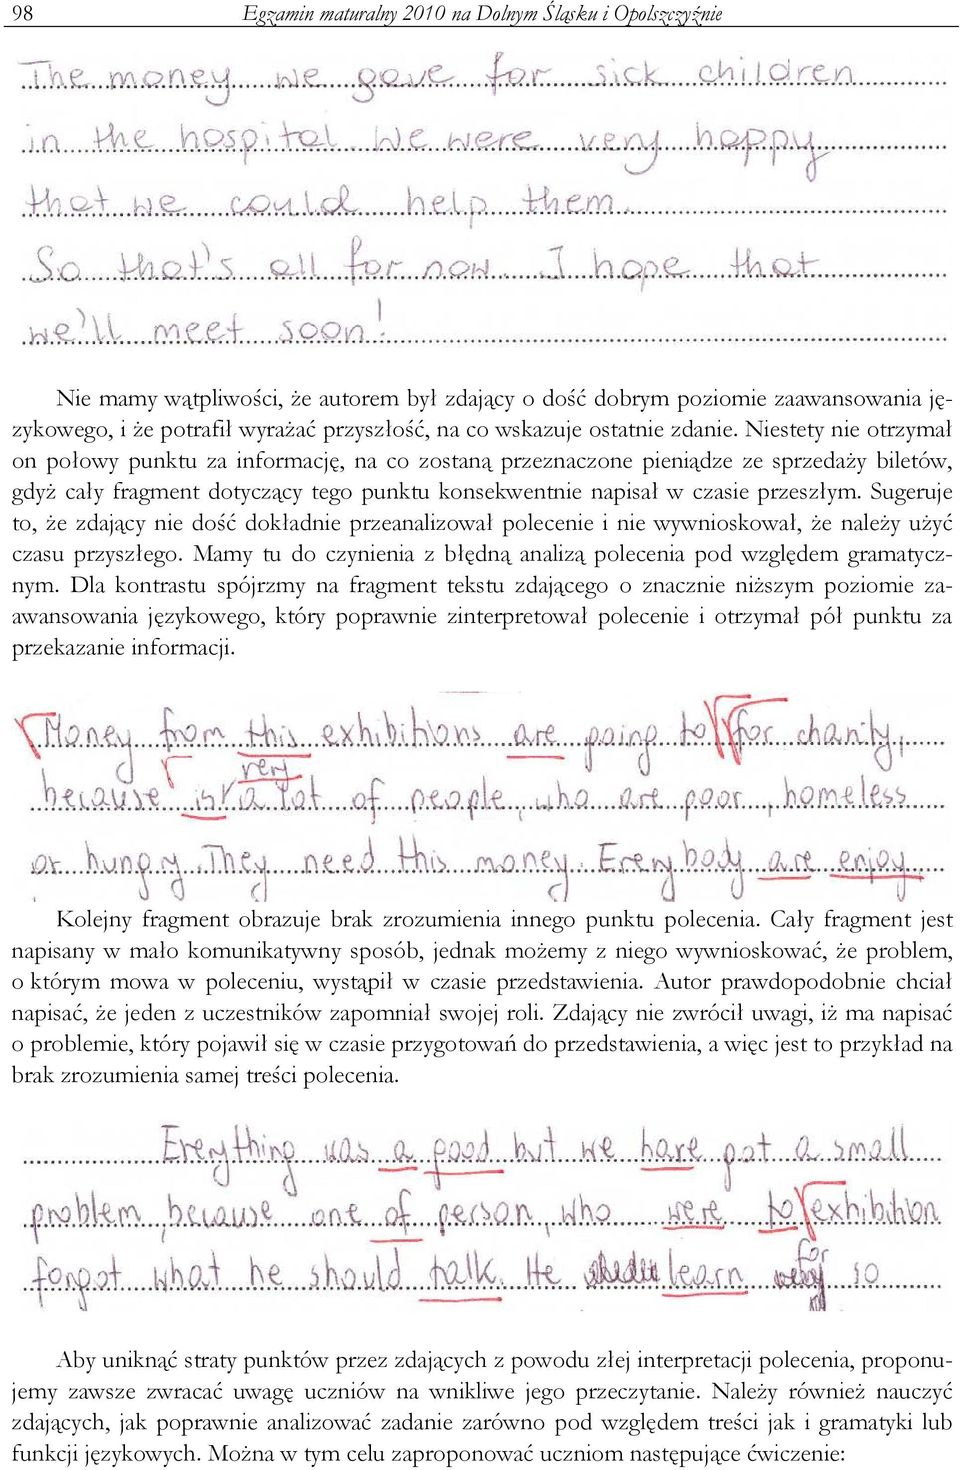 98 Egzamin maturalny 2010 na Dolnym Śląsku i Opolszczyźnie
The money we gave for sick children
in the hospital. We were very happy
that we could help them.
So that's all for now. I hope that
we'll meet soon!
Nie mamy wątpliwości, że autorem był zdający o dość dobrym poziomie zaawansowania ję-
zykowego, i że potrafił wyrażać przyszłość, na co wskazuje ostatnie zdanie. Niestety nie otrzymał
on połowy punktu za informację, na co zostaną przeznaczone pieniądze ze sprzedaży biletów,
gdyż cały fragment dotyczący tego punktu konsekwentnie napisał w czasie przeszłym. Sugeruje
to, że zdający nie dość dokładnie przeanalizował polecenie i nie wywnioskował, że należy użyć
czasu przyszłego. Mamy tu do czynienia z błędną analizą polecenia pod względem gramatycz-
nym. Dla kontrastu spójrzmy na fragment tekstu zdającego o znacznie niższym poziomie za-
awansowania językowego, który poprawnie zinterpretował polecenie i otrzymał pół punktu za
przekazanie informacji.
Money from this exhibitions are going to for charity,
very
because is a lot of people, who are poor, homeless
or hungry. They need this money. Everybody are enjoy
Kolejny fragment obrazuje brak zrozumienia innego punktu polecenia. Cały fragment jest
napisany w mało komunikatywny sposób, jednak możemy z niego wywnioskować, że problem,
o którym mowa w poleceniu, wystąpił w czasie przedstawienia. Autor prawdopodobnie chciał
napisać, że jeden z uczestników zapomniał swojej roli. Zdający nie zwrócił uwagi, iż ma napisać
o problemie, który pojawił się w czasie przygotowań do przedstawienia, a więc jest to przykład na
brak zrozumienia samej treści polecenia.
Everything was a good but we have got a small
problem, because one of person, who were to exhibition
for
forgot what he should talk. He learn so
Aby uniknąć straty punktów przez zdających z powodu złej interpretacji polecenia, proponu-
jemy zawsze zwracać uwagę uczniów na wnikliwe jego przeczytanie. Należy również nauczyć
zdających, jak poprawnie analizować zadanie zarówno pod względem treści jak i gramatyki lub
funkcji językowych. Można w tym celu zaproponować uczniom następujące ćwiczenie: